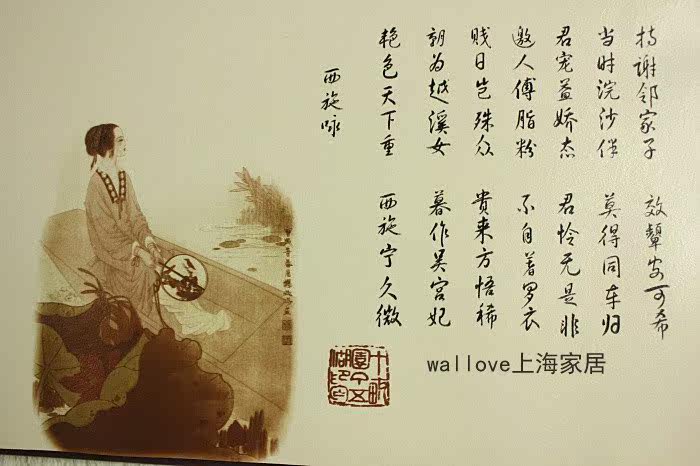 西施咏
艳色天下重 西施宁久微
朝为越溪女 暮作吴宫妃
贱日岂殊众 贵来方悟稀
邀人傅脂粉 不自着罗衣
君宠益娇态 君怜无是非
当时浣沙伴 莫得同车归
持谢邻家子 效颦安可希
wallove上海家居